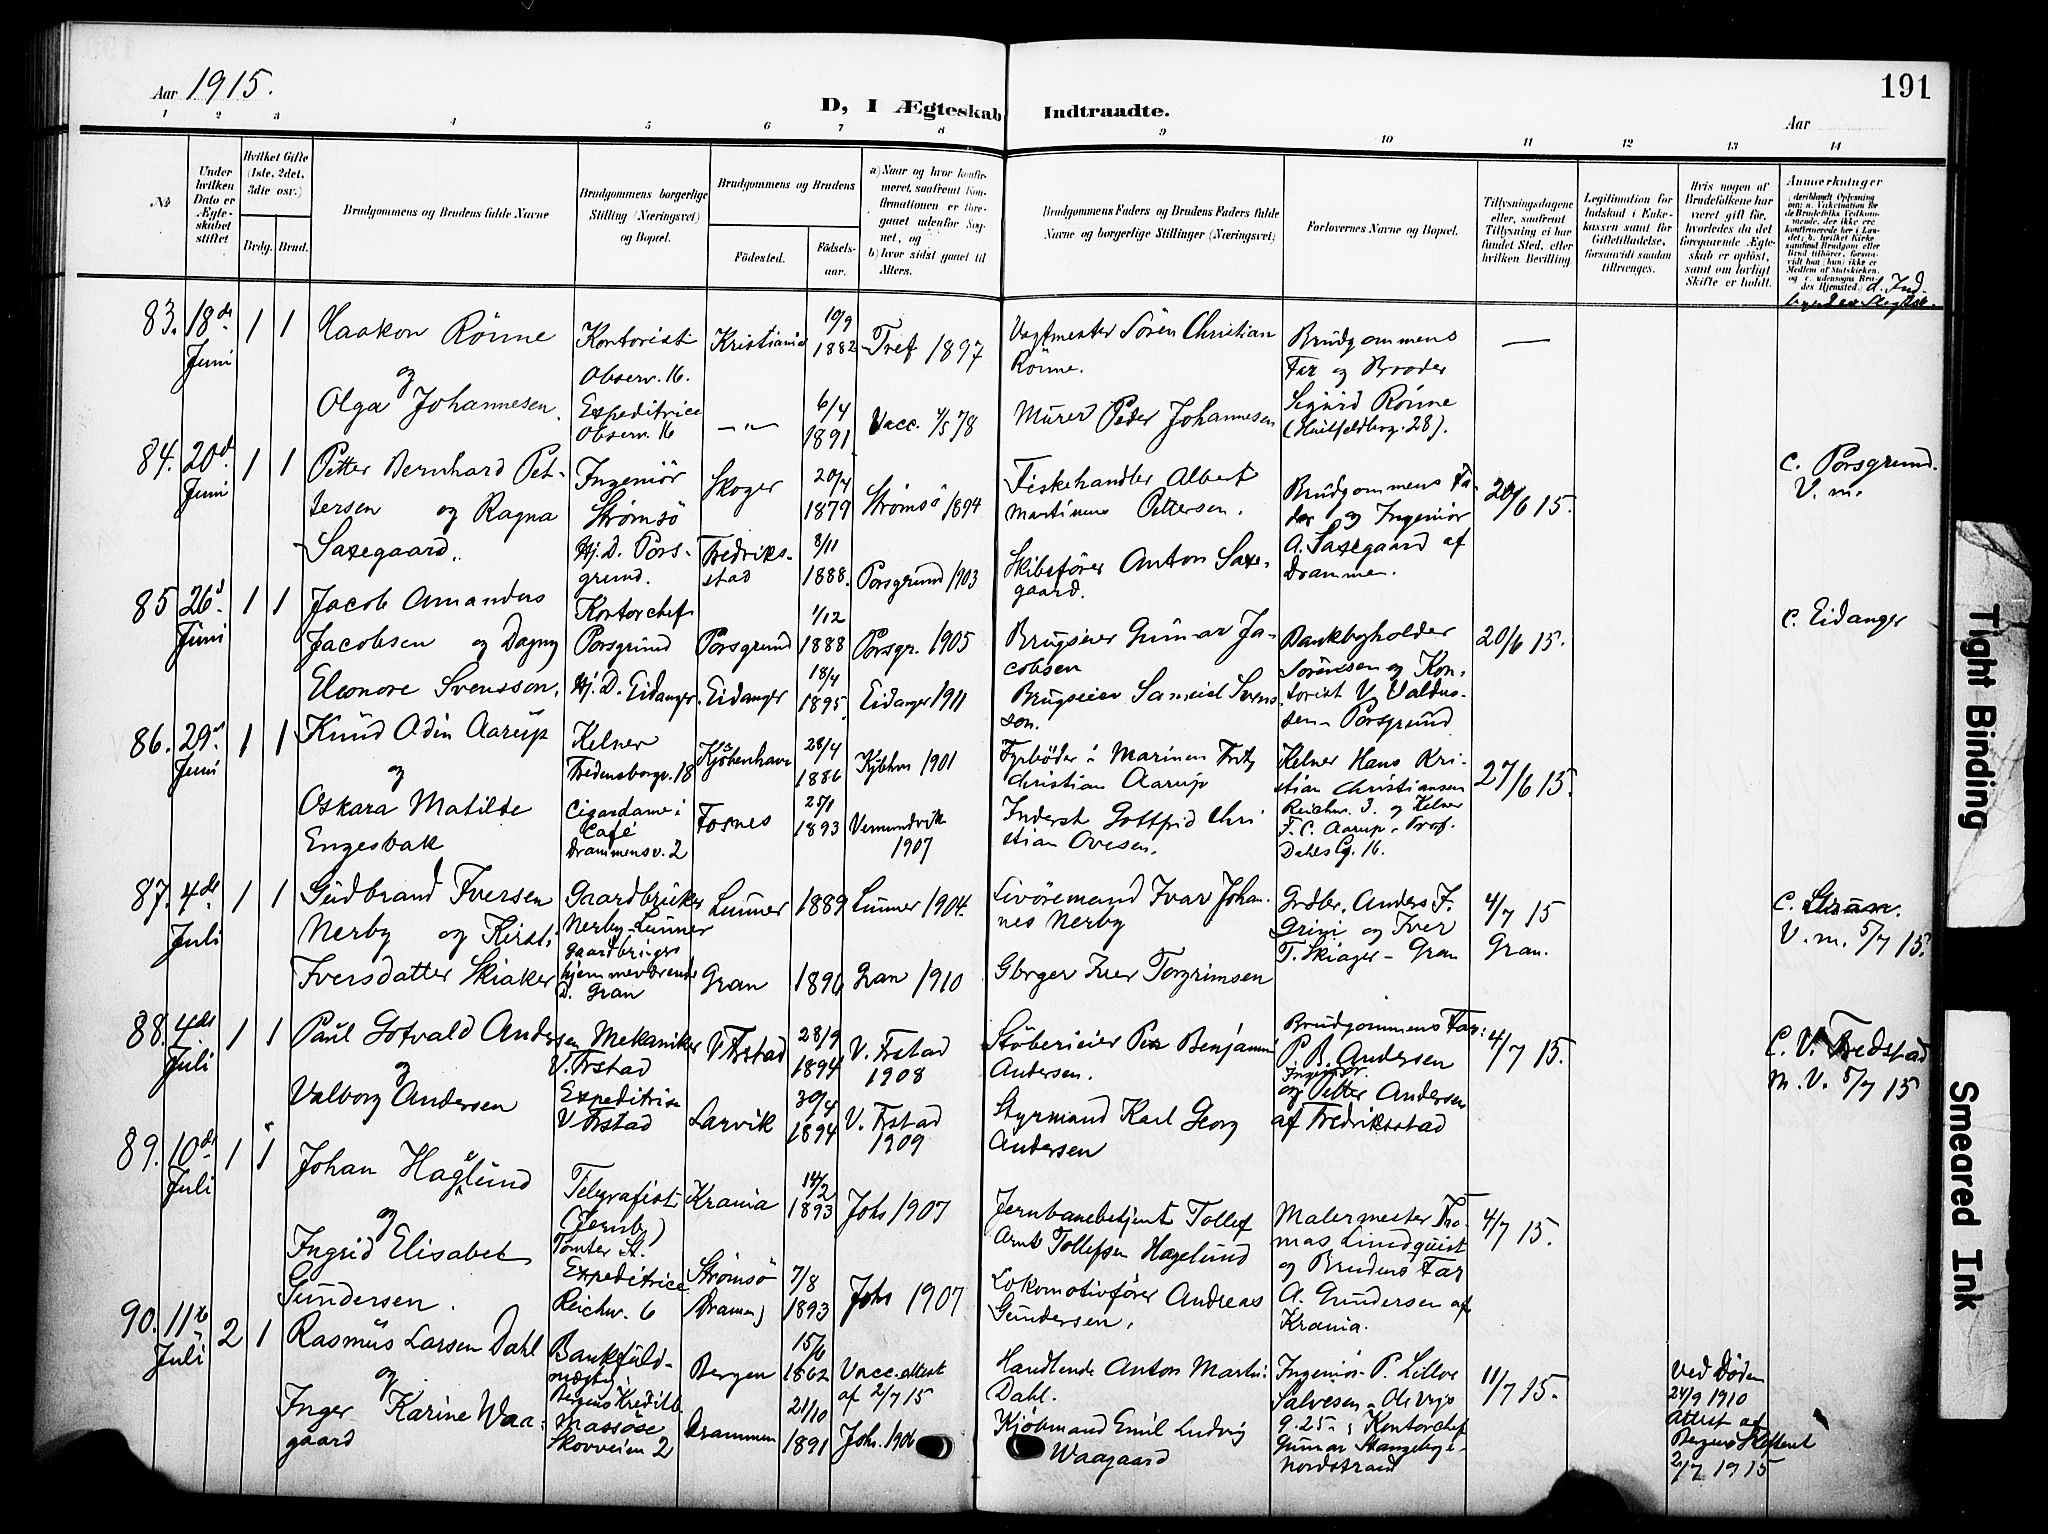 191
Aar 1915.
D, I Ægteskab Indtraadte.
Aar
1 2 3 4 5 6 7 8 9 10 11 12 13 14
No
Under hvilken Dato er Ægteskabet stiftet
Hvilket Gifte (1ste, 2det, 3die osv.)
Brdg. Brud.
Brudgommens og Brudens fulde Navne
Brudgommens borgerlige Stilling (Næringsvei) og Bopæl
Brudgommens og Brudens
Fødested.
Fødselsaar.
a) Naar og hvor konfirmeret, saafremt Konfirmationen er foregaaet udenfor Sognet, og
b) hvor sidst gaaet til Alters.
Brudgommens Faders og Brudens Faders fulde Navne og borgerlige Stillinger (Næringsvei)
Forlovernes Navne og Bopæl.
Tillysningsdagene eller, saafremt Tillysning ei har fundet Sted, efter hvilken Bevilling
Legitimation for Indskud i Enkekassen samt for Giftetilladelse, forsaavidt saadan tiltrænges.
Hvis nogen af Brudefolkene har været gift før, hvorledes da det foregaaende Ægteskab er opløst, samt om lovligt Skifte er holdt.
Anmerkninger
83. 18de Juni 1 1
Haakon Rönne
og
Olga Johannesen.
Kontorist
Observ. 16.
Expeditrice
Observ. 16
Kristiania
—"—
10/9 1882
6/4 1891
Tref 1897
Vacc. 4/5 78
Vagtmester Sören Christian Rönne.
Murer Peder Johannesen
Brudgommens
Far og Broder
Sigurd Rönne
(Huitfeldtsg. 28).
—
84. 20d. Juni 1 1
Petter Bernhard Pet-
tersen og Ragna
Saxegaard.
Ingeniör
Strømsö
Hj. D. Pors-
grund.
Skoger
Fredriks-
stad
20/4 1879
8/11 1888.
Strømsö 1894
Porsgrund 1903
Fiskehandler Albert
Martinius Pettersen.
Skibsfører Anton Saxe-
gaard.
Brudgommens Fa-
der og Ingeniör
A. Saxegaard af
Drammen.
20/6 15.
C. Porsgrund.
V. m.
85 26d Juni 1 1
Jacob Amandus
Jacobsen og Dagny
Eleonore Svensson.
Kontorchef
Porsgrund
Hj. D. Eidanger.
Porsgrund
Eidanger
1/12 1888
18/4 1895.
Porsgr. 1905
Eidanger 1911
Brugseier Gunnar Ja-
cobsen
Brugseier Samuel Svens
son.
Bankbogholder
Sörensen og Kon-
torist V. Valdus-
sen - Porsgrund
20/6 15.
C. Eidanger
86. 29d Juni 1 1
Knud Odin Aarup
og
Oskara Matilde
Engesbak
Kelner
Fredensborgv. 18
Cigardame i
Café
Drammensv. 2
Kjöbenhavn
Fosnes
28/4 1886
25/1 1893
Kjbhvn 1901
Vemundvik
1907
Fyrböder i Marinen Fritz
Christian Aarup
Inderst Gottfrid Chri
stian Ovesen.
Kelner Hans Kri-
stian Christiansen
Reichw. 3. og Kelner
F. C. Aarup, Prof.
Dahls G. 16.
27/6 15.
87. 4de Juli 1 1
Gudbrand Iversen
Nerby og Kirsti
Iversdatter Skiaker
Gaardbruker
Nerby - Lunner
hjemmeværende
D. Gran
Lunner
Gran
1889
1890
Lunner 1904.
Gran 1910
Livöremand Ivar Johan-
nes Nerby
Gbrger Iver Torgrimsen
Grdbr. Anders I.
Grini og Iver
T. Skiager - Gran
4/7 15
Gran.
C. Gran.
V. m. 5/7 15.
88. 4de Juli 1 1
Paul Gotvald Andersen
og
Valborg Andersen
Mekaniker
V. Frstad
Expeditrise
V. Frstad
V Frstad
Larvik
28/9 1894
30/4 1894
V. Frstad
1908
V. Frstad
1909
Stöberieier Per Benjamin
Andersen.
Styrmand Karl Georg
Andersen
Brudgommens Far:
P. B. Andersen
og Ingeniör Petter Andersen
af Fredriksstad
4/7 15.
C. V. Fredstad
m. V. 5/7 15
89. 10de Juli 1 1
Johan Hagelund
og
Ingrid Elisabet
Gundersen.
Telegrafist
(Jernby)
Tomter St.
Expeditrice
Reichw. 6
Krania
Strømsö
(Dramen)
14/2 1893
7/8 1893
Johs 1907
Johs 1907
Jernbanebetjent Tollef
Arnt Tollefsen Hagelund
Lokomotivfører Andreas
Gundersen.
Malermester Tho-
mas Lindquist
og Brudens Far
A. Gundersen af
Krania.
4/7 15.
90. 11te Juli 2 1
Rasmus Larsen Dahl
og
Inger Karine Waa-
gaard
Bankfuld-
mægtig
Bergens Kreditb.
Massöse
Skovveien 2
Bergen
Drammen
1862
21/10 1891
Vacc.attest
af 2/7 15
Joh. 1906
Handlende Anton Martin
Dahl.
Kjöbmand Emil Ludvig
Waagaard
Ingeniör P. Lilloe
Salvesen, Ole Vigs
g. 25 - ; Kontorchef
Gunnar Stangeby -
Nordstrand
11/7 15.
Ved Döden
24/9 1910
Attest af
Bergens Skifteret
2/7 1915
Tight Binding
Smeared Ink